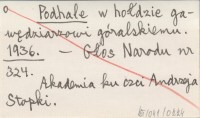 Podhale w hołdzie ga-
wędziarzowi góralskiemu.
1936. — Głos Narodu nr
324.
Akademia ku czci Andrzeja
Stopki.